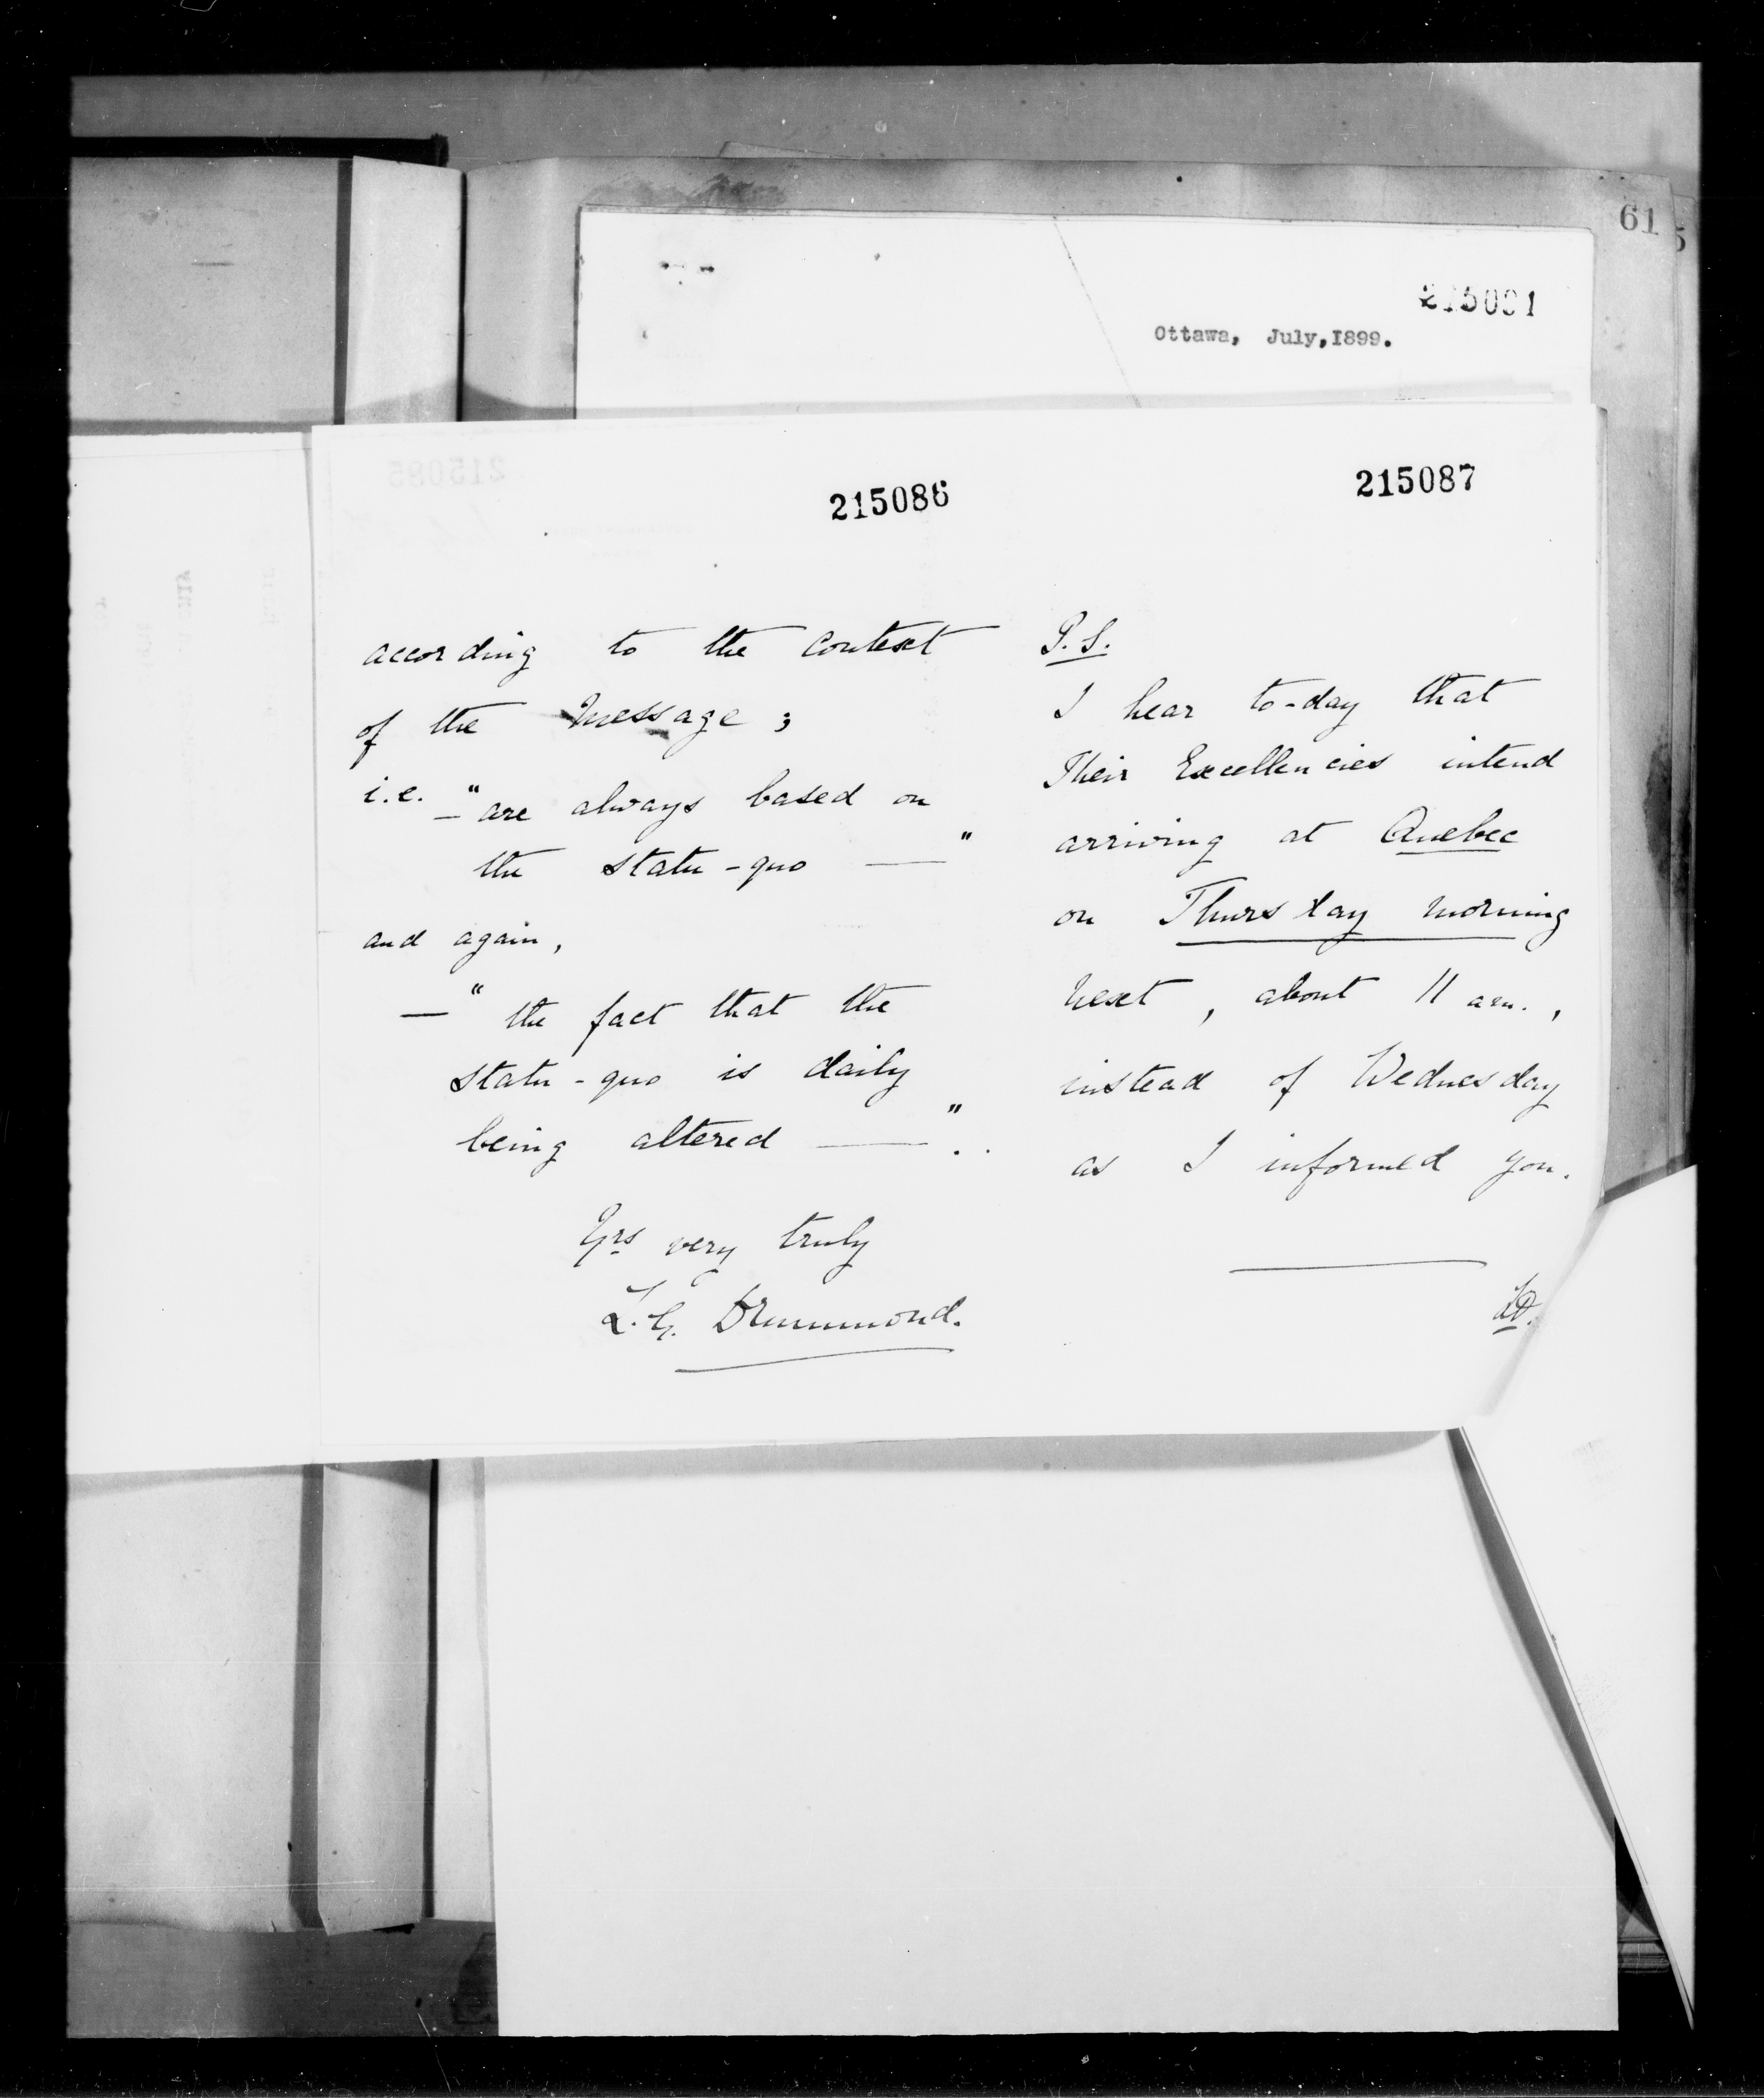 61
215091
Ottawa, July, 1899.
215086
according to the context
of the message;
i.e. — "are always based on
the statu-quo — "
and again,
— "the fact that the
statu-quo is daily
being altered — ".
Yrs very truly
L. G. Drummond.
215087
P.S.
I hear to-day that
Their Excellencies intend
arriving at Quebec
on Thursday morning
next, about 11 am.,
instead of Wednesday
as I informed you.
LD.